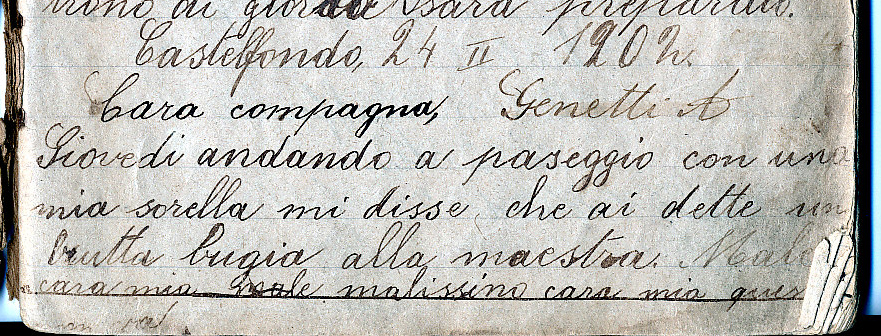 trono di gloria sara preparato.
Castelfondo, 24 II 1902.
Cara compagna, Genetti A
Giovedi andando a paseggio con una
mia sorella mi disse che ai dette un
brutta bugia alla maestra. Male
cara mia male malissino cara mia ques